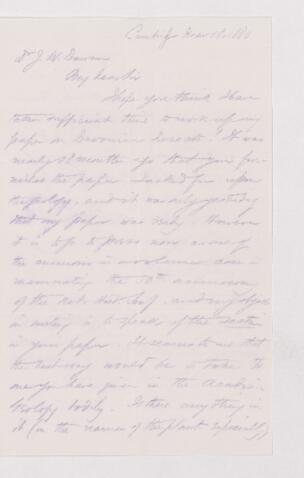 Dr J. W. Dawson
My dear Sir
Hope you think I have
taken sufficient time to work up my
paper on Devonian Insects! It was
nearly months ago that you
the paper I asked for upon
the geology, and it was only yesterday
that my paper was ready. However
it is off to press now as one of
the memoirs in a volume com-
memorating the 50th anniversary
of the Nat. Hist. Soc., and my object
in writing is to speak of the matter
in your paper. It seems to me that
the best way would be to take the
one you have given in the Acadian
Geology bodily. Is there anything in
it (in the names of the plants especially)